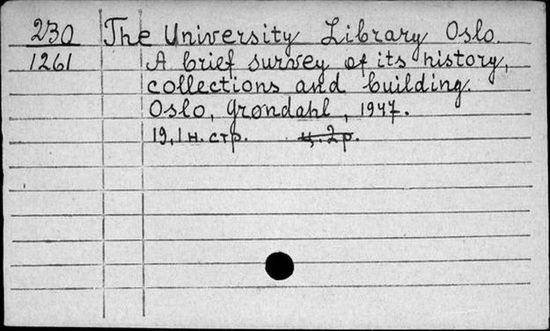 230 The University Library Oslo.
1261 A brief survey of its history,
collections and building.
Oslo, Grøndahl, 1947.
19, 1 н. стр. ц. 2 р.